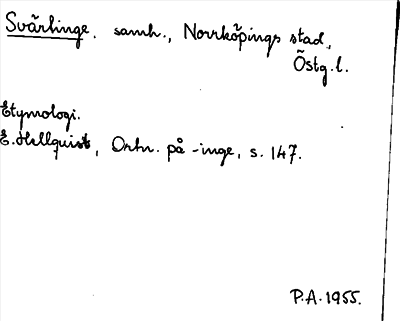 Svärtinge. samh., Norrköpings stad,
Östg.l.
Etymologi.
E. Hellquist, Ortn. på -inge, s. 147.
P.A. 1955.